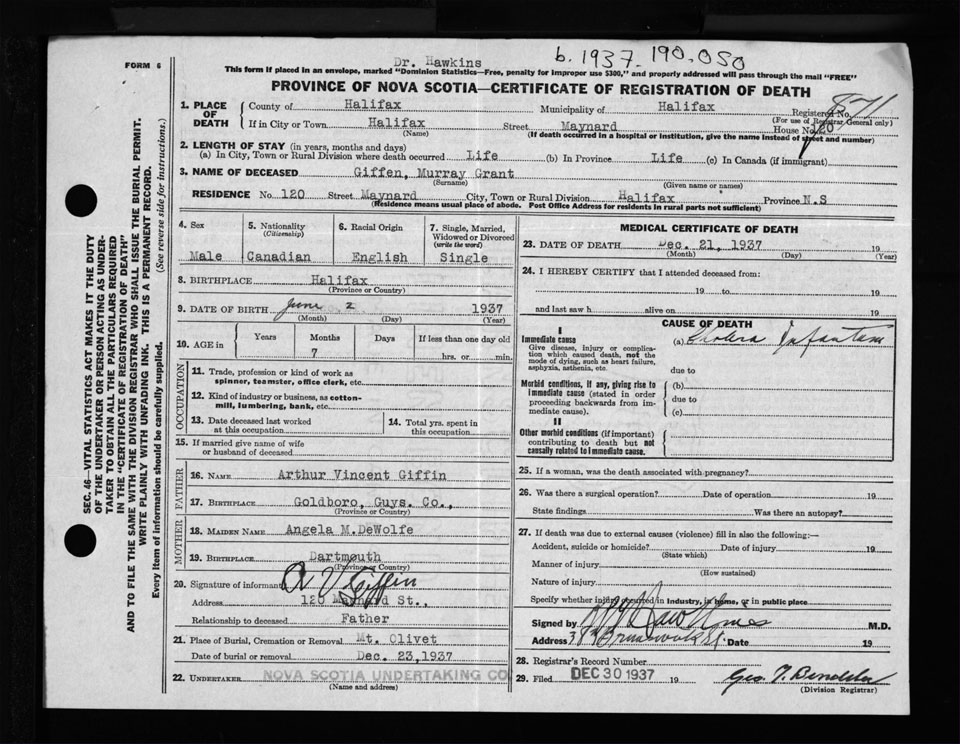 FORM 6
Dr. Hawkins b. 1937. 190.050
This form if placed in an envelope, marked "Dominion Statistics—Free, penalty for improper use $300," and properly addressed will pass through the mail "FREE"
PROVINCE OF NOVA SCOTIA—CERTIFICATE OF REGISTRATION OF DEATH
1. PLACE OF DEATH
County of Halifax Municipality of Halifax Registered No. 871
(For use of Registrar General only)
If in City or Town Halifax Street Maynard House No. 120
(Name) (If death occurred in a hospital or institution, give the name instead of street and number)
2. LENGTH OF STAY (in years, months and days)
(a) In City, Town or Rural Division where death occurred Life (b) In Province Life (c) In Canada (if immigrant)
3. NAME OF DECEASED Giffen, Murray Grant
(Surname) (Given name or names)
RESIDENCE No. 120 Street Maynard City, Town or Rural Division Halifax Province N.S
(Residence means usual place of abode. Post Office Address for residents in rural parts not sufficient)
4. Sex 5. Nationality (Citizenship) 6. Racial Origin 7. Single, Married, Widowed or Divorced (write the word)
Male Canadian English Single
8. BIRTHPLACE Halifax
(Province or Country)
9. DATE OF BIRTH June 2 1937
(Month) (Day) (Year)
10. AGE in Years Months Days If less than one day old
7 hrs. or min.
OCCUPATION
11. Trade, profession or kind of work as spinner, teamster, office clerk, etc.
12. Kind of industry or business, as cotton-mill, lumbering, bank, etc.
13. Date deceased last worked at this occupation
14. Total yrs. spent in this occupation
15. If married give name of wife or husband of deceased
FATHER
16. NAME Arthur Vincent Giffin
17. BIRTHPLACE Goldboro, Guys. Co.,
(Province or Country)
MOTHER
18. MAIDEN NAME Angela M.DeWolfe
19. BIRTHPLACE Dartmouth
(Province or Country)
20. Signature of informant A V Giffin
Address 120 Maynard St.,
Relationship to deceased Father
21. Place of Burial, Cremation or Removal Mt. Olivet
Date of burial or removal Dec. 23,1937
22. UNDERTAKER NOVA SCOTIA UNDERTAKING CO.
(Name and address)
MEDICAL CERTIFICATE OF DEATH
23. DATE OF DEATH Dec. 21, 1937 19
(Month) (Day) (Year)
24. I HEREBY CERTIFY that I attended deceased from:
19 to 19
and last saw h alive on 19
CAUSE OF DEATH
I
Immediate cause
Give disease, injury or complication which caused death, not the mode of dying, such as heart failure, asphyxia, asthenia, etc.
(a) Cholera Infantum
due to
Morbid conditions, if any, giving rise to immediate cause (stated in order proceeding backwards from immediate cause).
(b)
due to
(c)
II
Other morbid conditions (if important) contributing to death but not causally related to immediate cause.
25. If a woman, was the death associated with pregnancy?
26. Was there a surgical operation? Date of operation 19
State findings Was there an autopsy?
27. If death was due to external causes (violence) fill in also the following:—
Accident, suicide or homicide? Date of injury 19
(State which)
Manner of injury
(How sustained)
Nature of injury
Specify whether injury occurred in industry, in home, or in public place
Signed by M.D.
Address Brunswick St. Date 19
28. Registrar's Record Number
29. Filed DEC 30 1937 19 Geo. T.
(Division Registrar)
SEC. 46—VITAL STATISTICS ACT MAKES IT THE DUTY
OF THE UNDERTAKER OR PERSON ACTING AS UNDER-
TAKER TO OBTAIN ALL THE PARTICULARS REQUIRED
IN THE "CERTIFICATE OF REGISTRATION OF DEATH"
AND TO FILE THE SAME WITH THE DIVISION REGISTRAR WHO SHALL ISSUE THE BURIAL PERMIT.
WRITE PLAINLY WITH UNFADING INK. THIS IS A PERMANENT RECORD.
Every item of information should be carefully supplied. (See reverse side for instructions.)